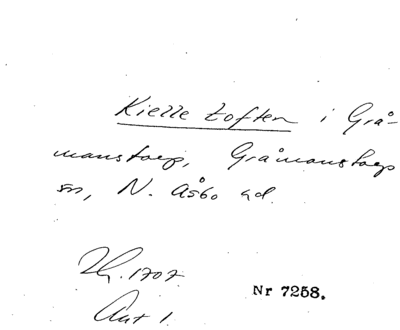 Kielle toften i Grå-
manstorp, Gråmanstorps
sn, N. Åsbo hd.
Lh. 1707.
Ant 1.
Nr 7258.